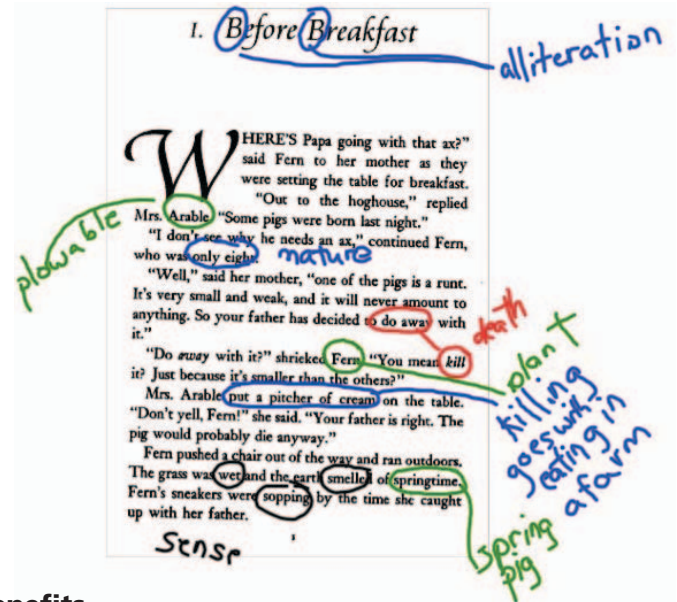 I. Before Breakfast
alliteration
WHERE'S Papa going with that ax?"
said Fern to her mother as they
were setting the table for breakfast.
"Out to the hoghouse," replied
Mrs. Arable "Some pigs were born last night."
"I don't see why he needs an ax," continued Fern,
who was only eight.
nature
plowable
"Well," said her mother, "one of the pigs is a runt.
It's very small and weak, and it will never amount to
anything. So your father has decided to do away with
it."
death
"Do away with it?" shrieked Fern "You mean kill
it? Just because it's smaller than the others?"
plant
Mrs. Arable put a pitcher of cream on the table.
"Don't yell, Fern!" she said. "Your father is right. The
pig would probably die anyway."
killing
goes with
eating in
a farm
Fern pushed a chair out of the way and ran outdoors.
The grass was wet and the earth smelled of springtime.
Fern's sneakers were sopping by the time she caught
up with her father.
sense
spring
pig